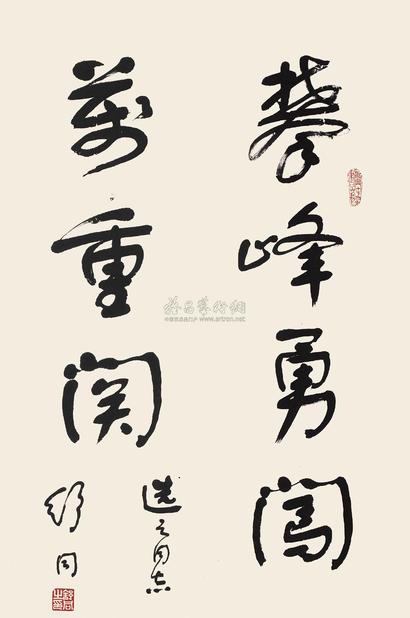 攀峰勇闯
万重关
选之同志
舒同
雅昌藝術網
www.artron.net